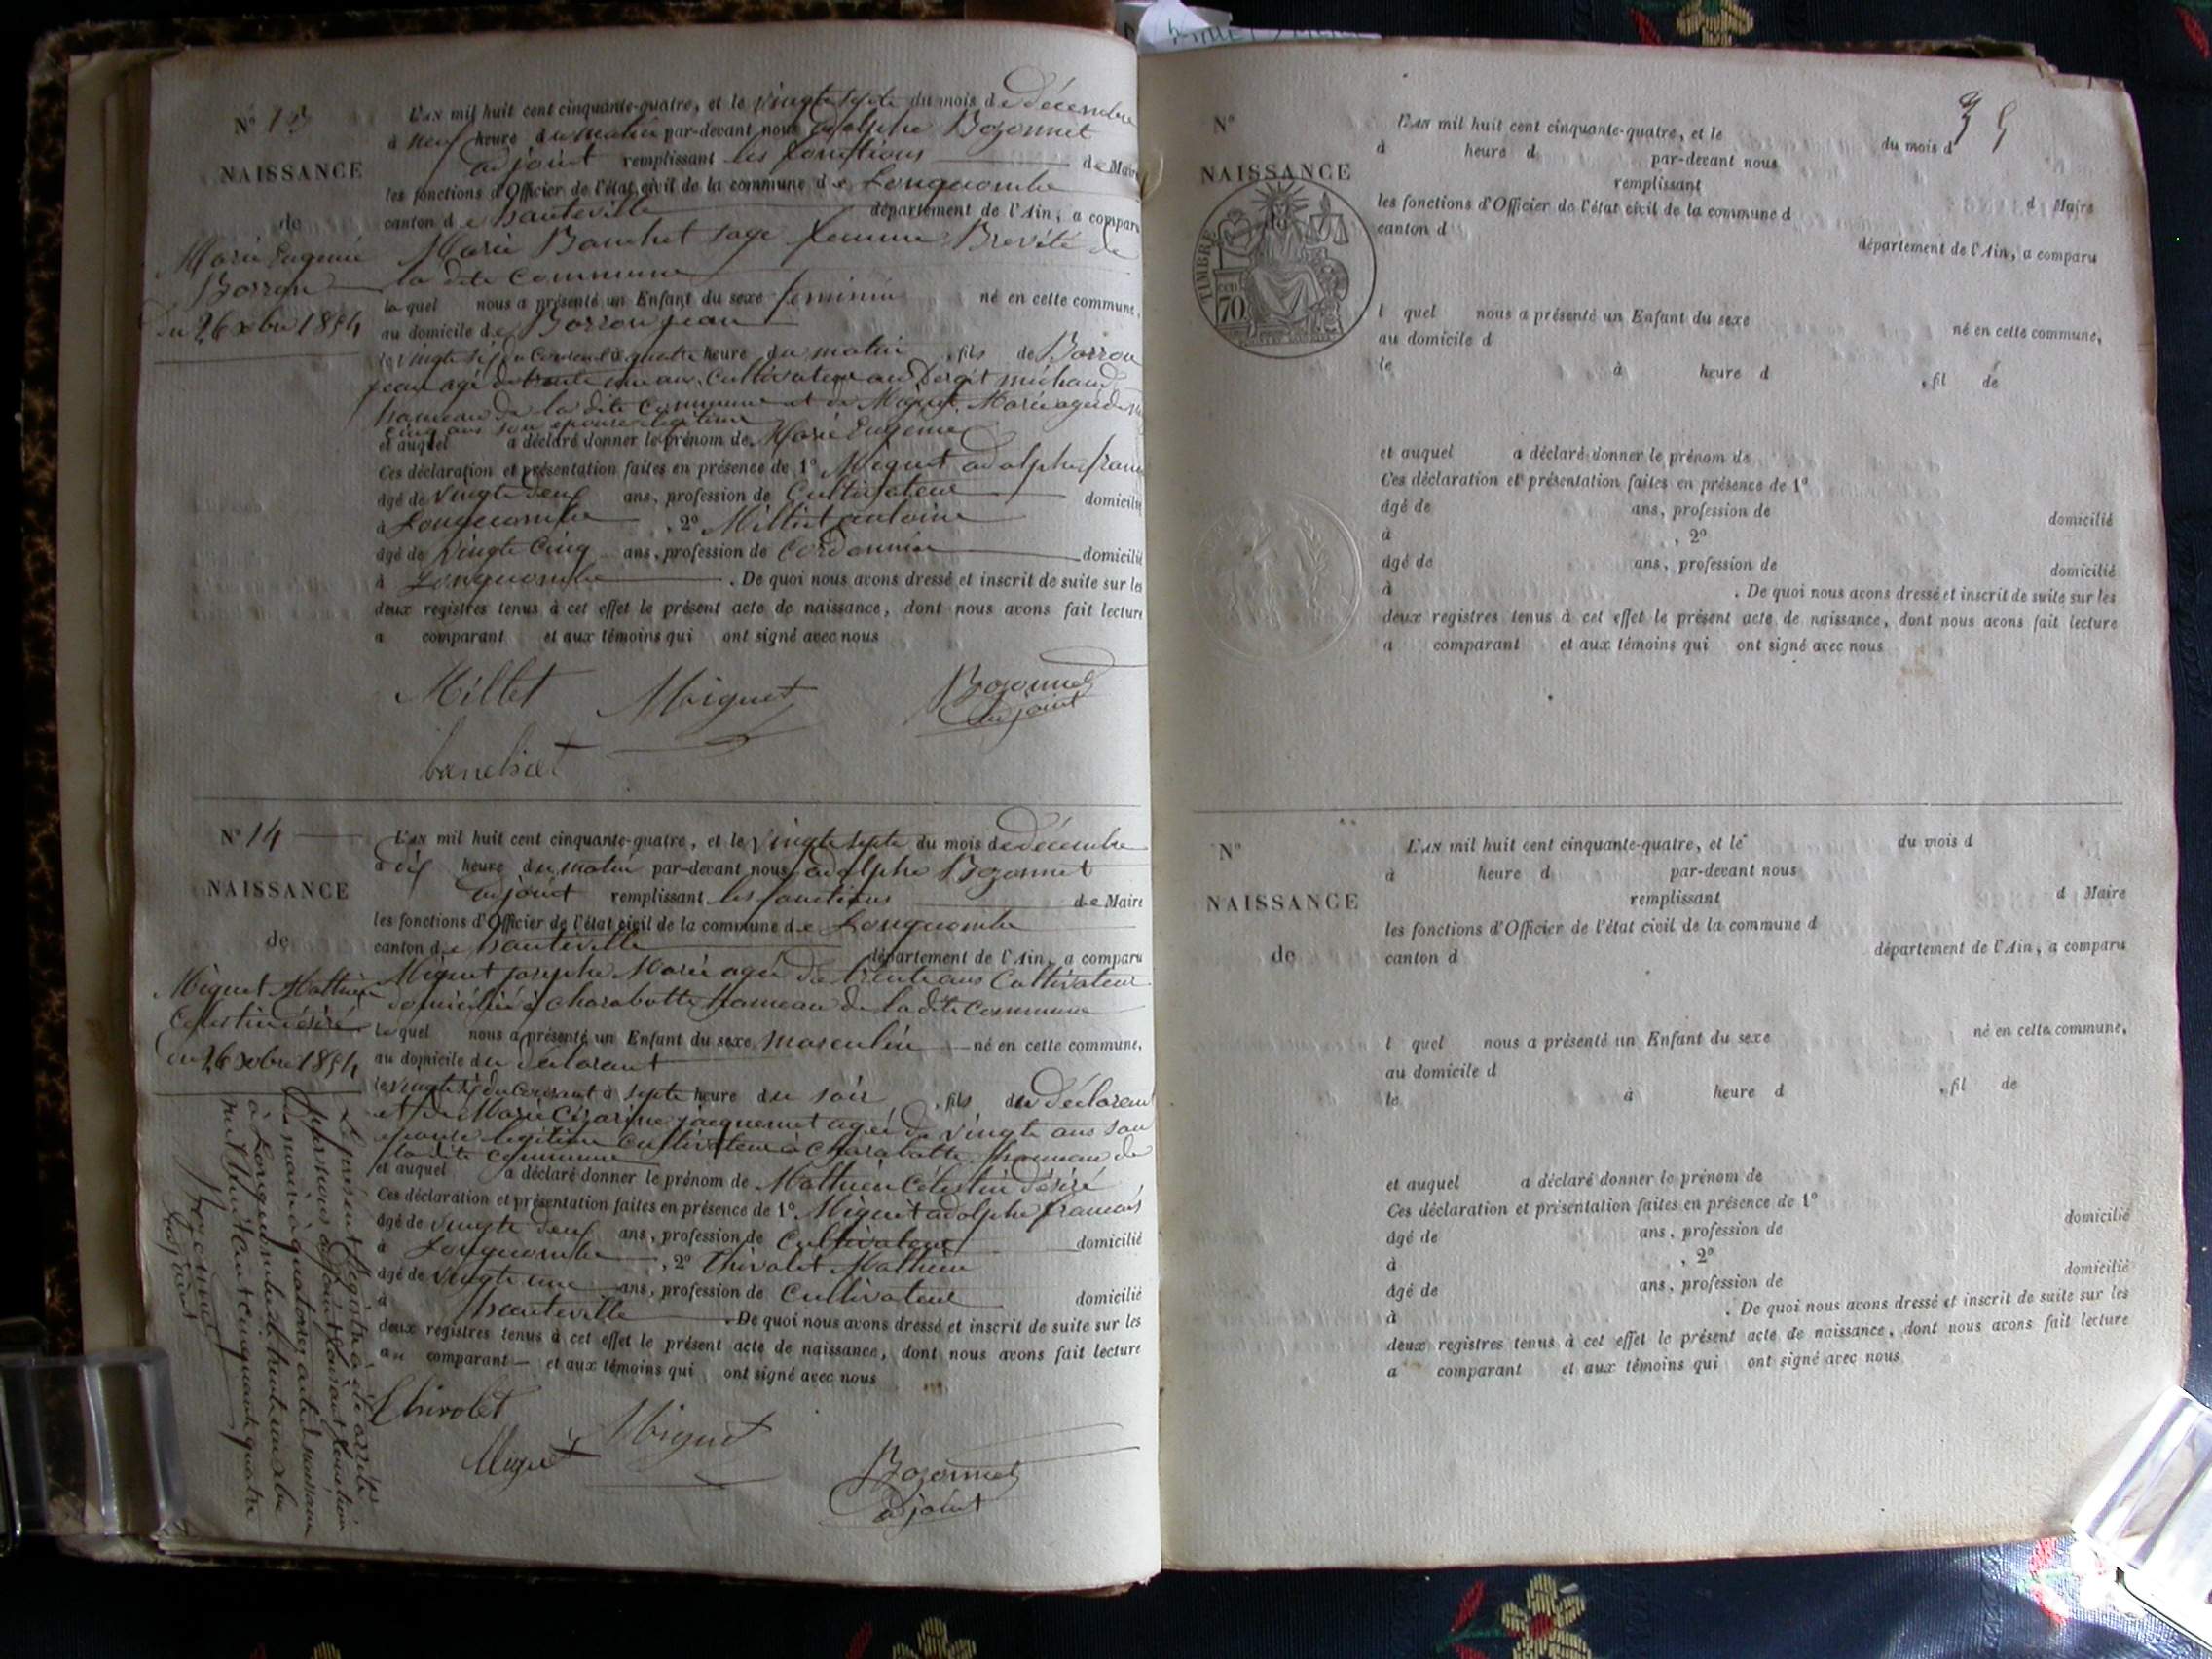 N° 13
NAISSANCE
de
Marie Eugenie
Borron
du 26 xbre 1854
L'AN mil huit cent cinquante-quatre, et le vingte septe du mois de décembre
à neuf heure du matin par-devant nous adolphe Bozonnet
adjoint remplissant les fonctions de Maire
les fonctions d'Officier de l'état civil de la commune de Longecombe
canton de hauteville département de l'Ain, a comparu
Marie Banchet sage femme Breveté de
la dite Commune
laquel nous a présenté un Enfant du sexe feminin né en cette commune,
au domicile de Borron jean
le vingte six du Courant à quatre heure du matin , fils de Borron
jean agé de trente ans, Cultivateur au michaud
hameau de la dite Commune et de Miguet Marie agée de
cinq ans son epouse legitime
et auquel a déclaré donner le prénom de Marie Eugenie
Ces déclaration et présentation faites en présence de 1° Miguet adolphe
âgé de vingte deux ans, profession de Cultivateur domicilié
à Longecombe , 2° Milliet antoine
âgé de vingte Cinq ans, profession de Cordonnier domicilié
à Longecombe . De quoi nous avons dressé et inscrit de suite sur les
deux registres tenus à cet effet le présent acte de naissance, dont nous avons fait lecture
a comparant et aux témoins qui ont signé avec nous
Millet Miguet Bozonnet
adjoint
banchet
N° 14
NAISSANCE
de
Miguet Mathieu
Celestin désiré
du 26 xbre 1854
L'AN mil huit cent cinquante-quatre, et le vingte septe du mois de décembre
à dix heure du matin par-devant nous adolphe Bozonnet
adjoint remplissant les fonctions de Maire
les fonctions d'Officier de l'état civil de la commune de Longecombe
canton de hauteville département de l'Ain, a comparu
Miguet josephe Marie agé de trente ans Cultivateur
domicilié à charabotte hameau de la dite Commune
lequel nous a présenté un Enfant du sexe masculin né en cette commune,
au domicile du déclarant
le vingte six du Courant à septe heure du soir , fils du déclarant
et de Marie Cézarine jacquemet agée de vingte ans son
epouse legitime Cultivateur à Charabotte hameau de
la dite commune
et auquel a déclaré donner le prénom de Mathieu Célestin désiré
Ces déclaration et présentation faites en présence de 1° Miguet adolphe francois
âgé de vingte deux ans, profession de Cultivateur domicilié
à Longecombe , 2° Chivolet Mathieu
âgé de vingte une ans, profession de Cultivateur domicilié
à hauteville . De quoi nous avons dressé et inscrit de suite sur les
deux registres tenus à cet effet le présent acte de naissance, dont nous avons fait lecture
au comparant et aux témoins qui ont signé avec nous
Chivolet
Miguet Miguet Bozonnet
adjoint
Le présent Registre a été arrété
par nous adjoint faisant fonction
de maire à quatorze actes de naissance
à Longecombe le trente un xbre
mil huit cent cinquante quatre
Bozonnet
adjoint
35
N°
NAISSANCE
TIMBRE
70
L'AN mil huit cent cinquante-quatre, et le du mois d
à heure d par-devant nous
remplissant d Maire
les fonctions d'Officier de l'état civil de la commune d
canton d département de l'Ain, a comparu
l quel nous a présenté un Enfant du sexe né en cette commune,
au domicile d
le à heure d , fil de
et auquel a déclaré donner le prénom de
Ces déclaration et présentation faites en présence de 1°
âgé de ans, profession de domicilié
à , 2°
âgé de ans, profession de domicilié
à . De quoi nous avons dressé et inscrit de suite sur les
deux registres tenus à cet effet le présent acte de naissance, dont nous avons fait lecture
a comparant et aux témoins qui ont signé avec nous
N°
NAISSANCE
de
L'AN mil huit cent cinquante-quatre, et le du mois d
à heure d par-devant nous
remplissant d Maire
les fonctions d'Officier de l'état civil de la commune d
canton d département de l'Ain, a comparu
l quel nous a présenté un Enfant du sexe né en cette commune,
au domicile d
le à heure d , fil de
et auquel a déclaré donner le prénom de
Ces déclaration et présentation faites en présence de 1°
âgé de ans, profession de domicilié
à , 2°
âgé de ans, profession de domicilié
à . De quoi nous avons dressé et inscrit de suite sur les
deux registres tenus à cet effet le présent acte de naissance, dont nous avons fait lecture
a comparant et aux témoins qui ont signé avec nous